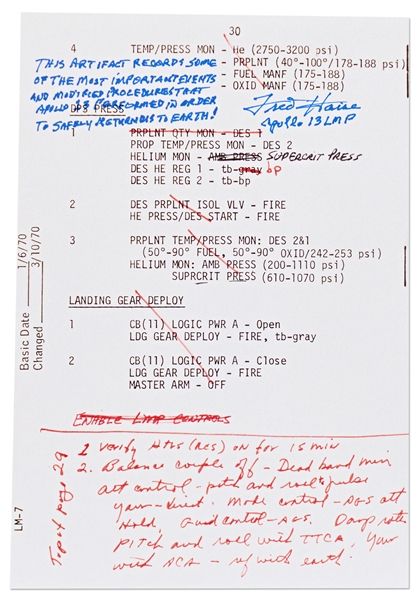 30
4 TEMP/PRESS MON - He (2750-3200 psi)
- PRPLNT (40°-100°/178-188 psi)
- FUEL MANF (175-188)
- OXID MANF (175-188)
THIS ARTIFACT RECORDS SOME
OF THE MOST IMPORTANT EVENTS
AND MODIFIED PROCEDURES THAT
APOLLO 13 PERFORMED IN ORDER
TO SAFELY RETURN US TO EARTH!
Fred Haise
Apollo 13 LMP
DPS PRESS
1 PRPLNT QTY MON - DES 1
PROP TEMP/PRESS MON - DES 2
HELIUM MON - AMB PRESS SUPERCRIT PRESS
DES HE REG 1 - tb-gray bp
DES HE REG 2 - tb-bp
2 DES PRPLNT ISOL VLV - FIRE
HE PRESS/DES START - FIRE
3 PRPLNT TEMP/PRESS MON: DES 2&1
(50°-90° FUEL, 50°-90° OXID/242-253 psi)
HELIUM MON: AMB PRESS (200-1110 psi)
SUPRCRIT PRESS (610-1070 psi)
LANDING GEAR DEPLOY
1 CB(11) LOGIC PWR A - Open
LDG GEAR DEPLOY - FIRE, tb-gray
2 CB(11) LOGIC PWR A - Close
LDG GEAR DEPLOY - FIRE
MASTER ARM - OFF
Basic Date 1/6/70
Changed 3/10/70
LM-7
ENABLE LMP CONTROLS
Top of page 29
1 Verify (RCS) on for 15 min
2. Balance couple off - Dead band min
att control - pitch and roll pulse
yaw - direct. Mode control - AGS att
Hold, Guid control - AGS. Damp rates
Pitch and roll with TTCA, Yaw
with ACA - with earth.